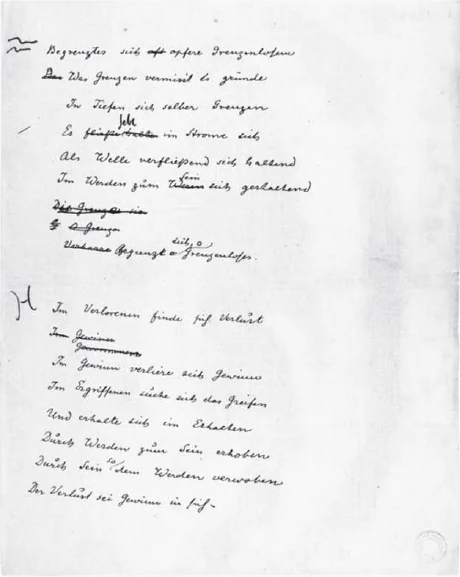 Begrenztes sich oft opfere Grenzenlosem
Das Was Grenzen vermisst Es gründe
In Tiefen sich selber Grenzen
hebe
Es fließe im Strome sich
Als Welle verfließend sich haltend
Im Werden zum Sein sich gestaltend
Die Grenze sie
Grenze
Begrenzt sich, o Grenzenloses.
Im Verlorenen finde sich Verlust
Im Gewinne
Im Gewinn verliere sich Gewinn
Im Ergriffenen suche sich das Greifen
Und erhalte sich im Erhalten
Durch Werden zum Sein erhoben
Durch Sein so dem Werden verwoben
Der Verlust sei Gewinn in sich.